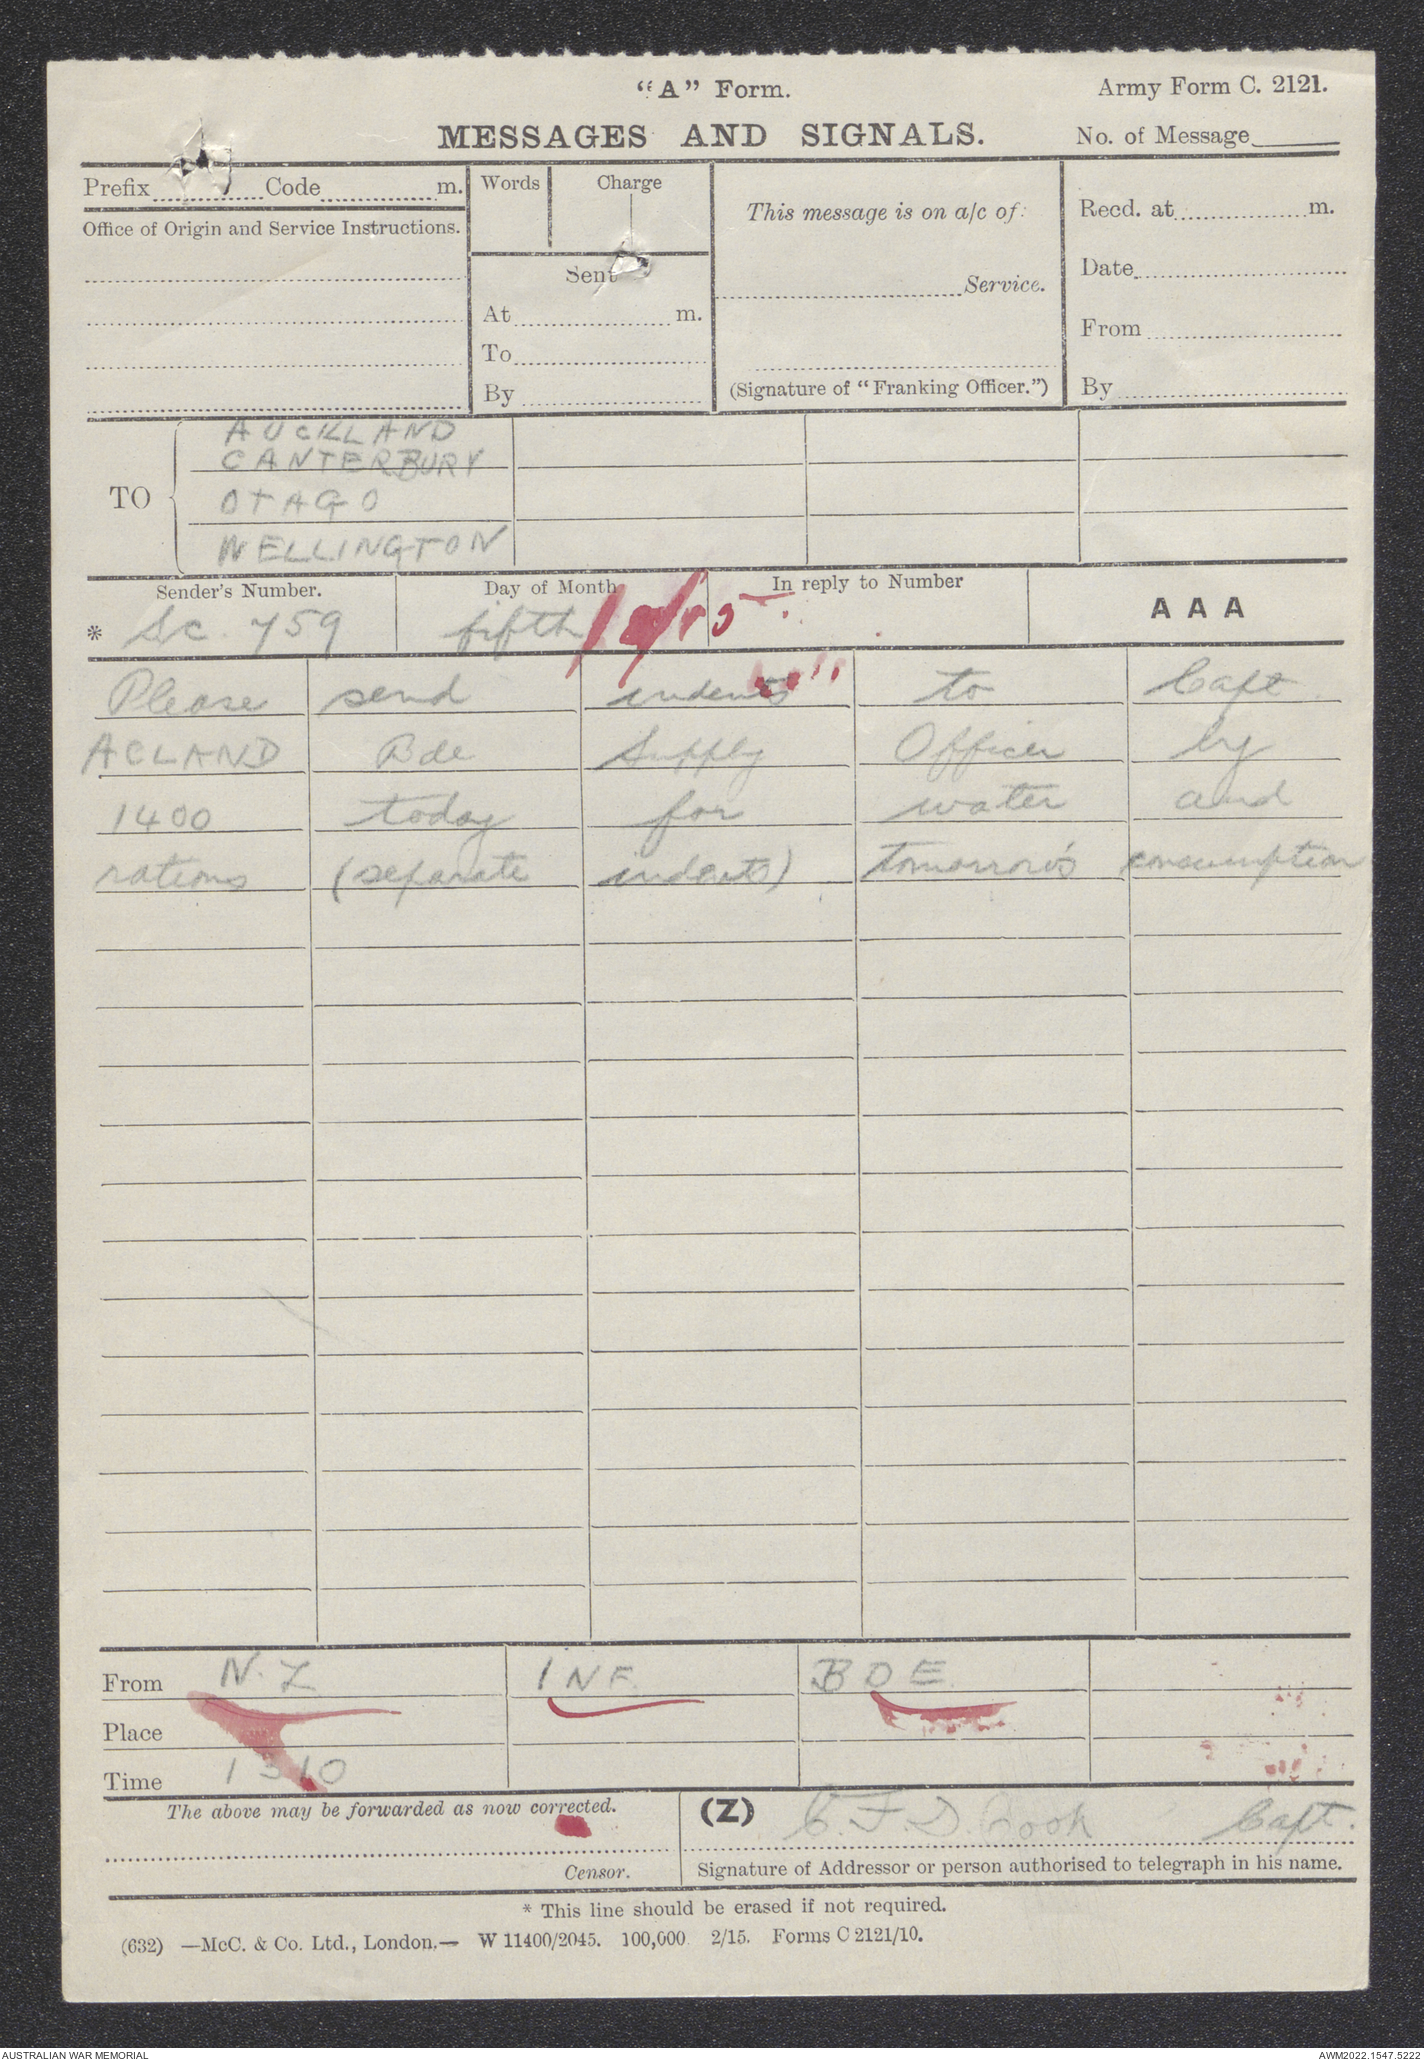 "A" Form.
Army Form C. 2121.
MESSAGES AND SIGNALS.
No. of Message
Prefix Code m.
Words Charge
This message is on a/c of:
Recd. at m.
Office of Origin and Service Instructions.
Sent
Service.
Date
At m.
From
To
(Signature of "Franking Officer.")
By
By
AUCKLAND
CANTERBURY
TO
OTAGO
WELLINGTON
Sender's Number. Day of Month In reply to Number
A A A
* Sc. 759 fifth
Please send indents to Capt.
ACLAND Bde Supply Officer by
1400 today for water and
rations (separate indents) tomorrow's consumption
From N.Z INF. BDE.
Place
Time 1310
The above may be forwarded as now corrected.
(Z) C.F.D. Cook Capt.
Censor.
Signature of Addressor or person authorised to telegraph in his name.
* This line should be erased if not required.
(632) —McC. & Co. Ltd., London.— W 11400/2045. 100,000 2/15. Forms C 2121/10.
AUSTRALIAN WAR MEMORIAL
AWM2022.1547.5222